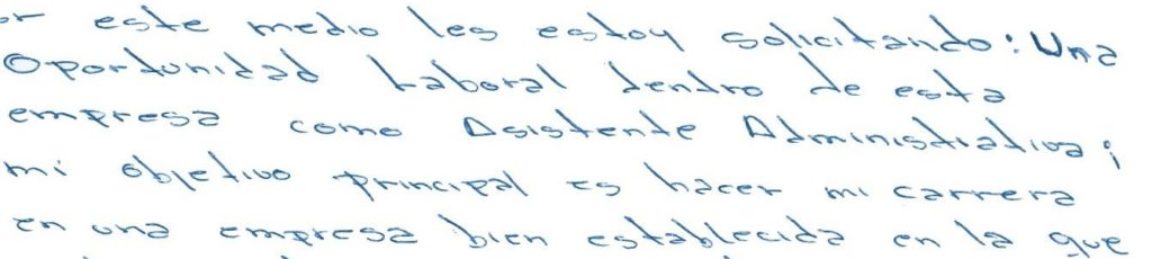 or este medio les estoy solicitando: Una
Oportunidad Laboral dentro de esta
empresa como Asistente Administrativa;
mi objetivo principal es hacer mi carrera
en una empresa bien establecida en la que